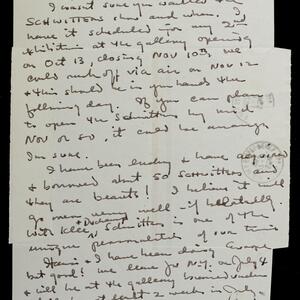 I wasn't sure you wanted the
SCHWITTERS show and when. I
have it scheduled for my 2nd
exhibition at the gallery opening
on Oct 13, closing NOV 10th, we
could rush off via air on NOV 12
& this should be in your hands the
following day. If you can plan
to open the Schwitters by mid
NOV or so, it could be arranged
I'm sure.
I have been lucky & have acquired
& borrowed about 50 Schwitters and
they are beauts! I believe it will
go very well – if
with Klee & Duchamp Schwitters is one of the
unique personalities of our times
& I have been doing
but good! We leave for N.Y. on July 4
& will be at the gallery
at least 2 weeks in July